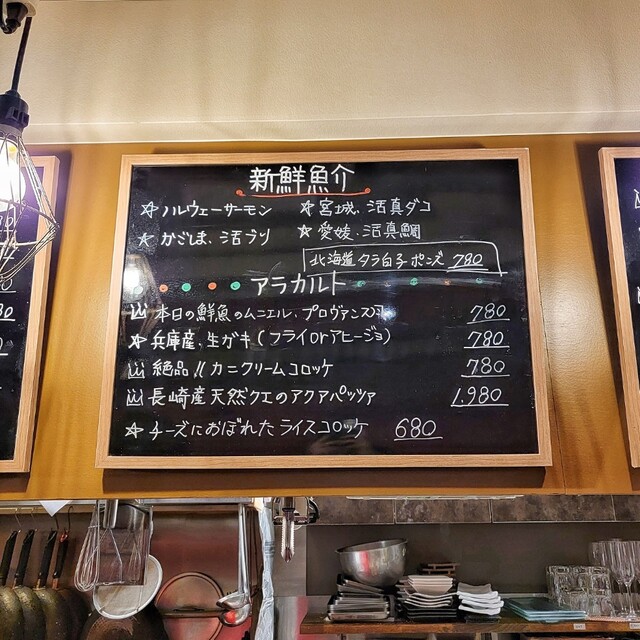 新鮮魚介
☆ノルウェーサーモン ☆宮城、活真ダコ
☆かごしま、活ブリ ☆愛媛、活真鯛
北海道タラ白子ポンズ 780
アラカルト
本日の鮮魚のムニエル、プロヴァンス風 780
☆兵庫産、生ガキ(フライorアヒージョ) 780
絶品!!カニクリームコロッケ 780
長崎産天然クエのアクアパッツァ 1,980
☆チーズにおぼれたライスコロッケ 680